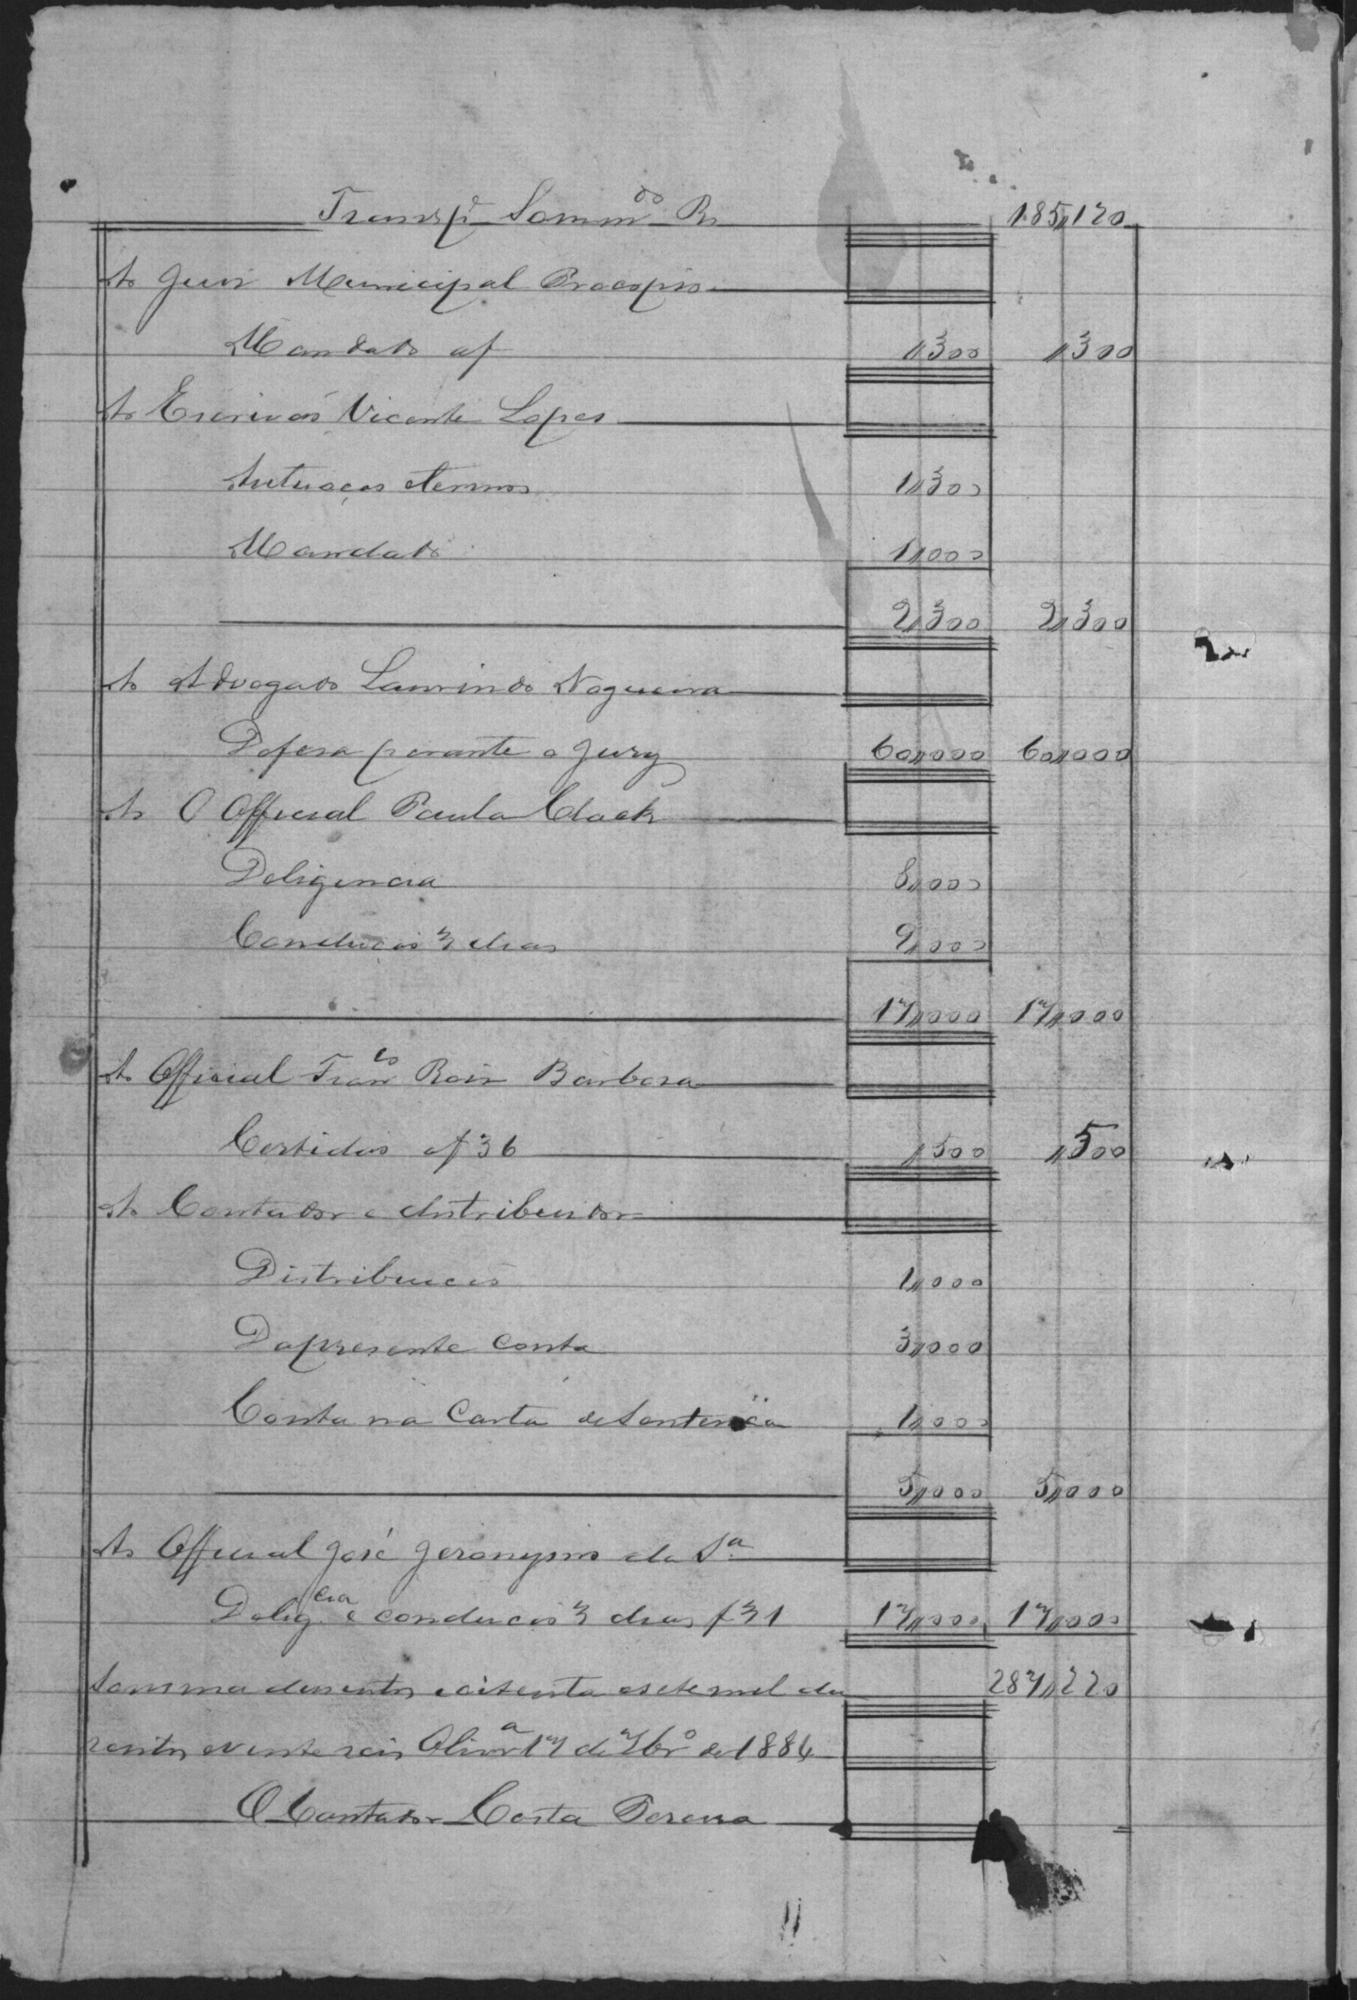 Transp.e Somm.do Rs 185,,120
Ao Juiz Municipal Procopio
Mandado af ,,300 ,,300
Ao Escrivaõ Vicente Lopes
Autuaçaõ etermos 1,,300
Mandado 1,,000
2,,300 2,,300
Ao Advogado Laurindo Nogueira
Defesa perante o Jury 60,,000 60,,000
Ao O Official Paula Clack
Deligencia 8,,000
Conducaõ 3 dias 9,,000
17,,000 17,,000
Ao Official Fran.co Roiz Barbosa
Certidaõ af 36 ,,500 ,,500
Ao Contador e distribuidor
Distribuicaõ 1,,000
Dapresente conta 3,,000
Conta na Carta deSentença 1,,000
5,,000 5,,000
Ao Official José Jeronymo da S.a
Delig.cia e conducaõ 3 dias f 31 17,,000 17,,000
Somma dusentos eoitenta esetemil du 287,,220
zentos evinte reis Olivr.a 17 de 7br.o de 1884
O Contador Costa Pereira